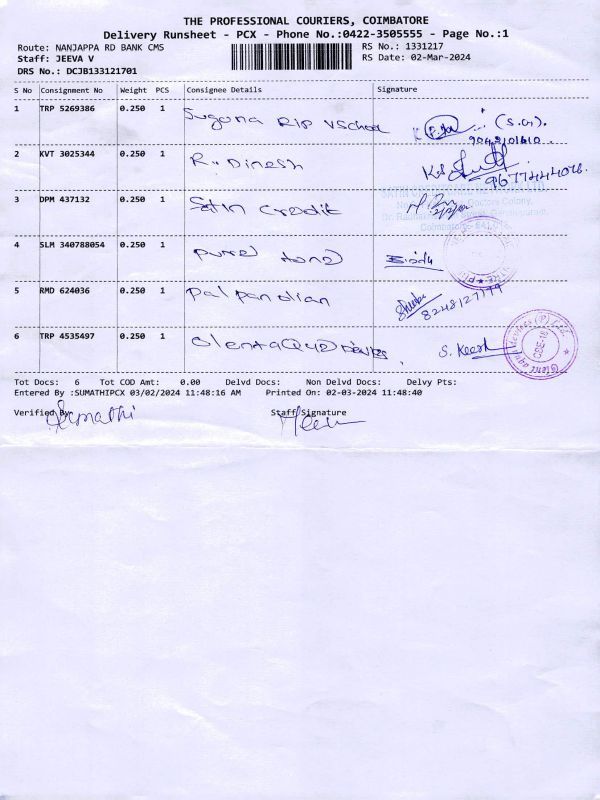 THE PROFESSIONAL COURIERS, COIMBATORE
Delivery Runsheet - PCX - Phone No.:0422-3505555 - Page No.:1
Route: NANJAPPA RD BANK CMS
RS No.: 1331217
Staff: JEEVA V
RS Date: 02-Mar-2024
DRS No.: DCJB133121701
S No Consignment No Weight PCS Consignee Details Signature
1 TRP 5269386 0.250 1 Suguna RIP VSchool (S.G).
2 KVT 3025344 0.250 1 R. Dinesh 9677444076.
3 DPM 437132 0.250 1 Satin Credit
4 SLM 340788054 0.250 1
5 RMD 624036 0.250 1 Palpandian 8248127179
6 TRP 4535497 0.250 1 S. Keesh
Tot Docs: 6 Tot COD Amt: 0.00 Delvd Docs: Non Delvd Docs: Delvy Pts:
Entered By :SUMATHIPCX 03/02/2024 11:48:16 AM Printed On: 02-03-2024 11:48:40
Verified By Staff Signature
Sumathi